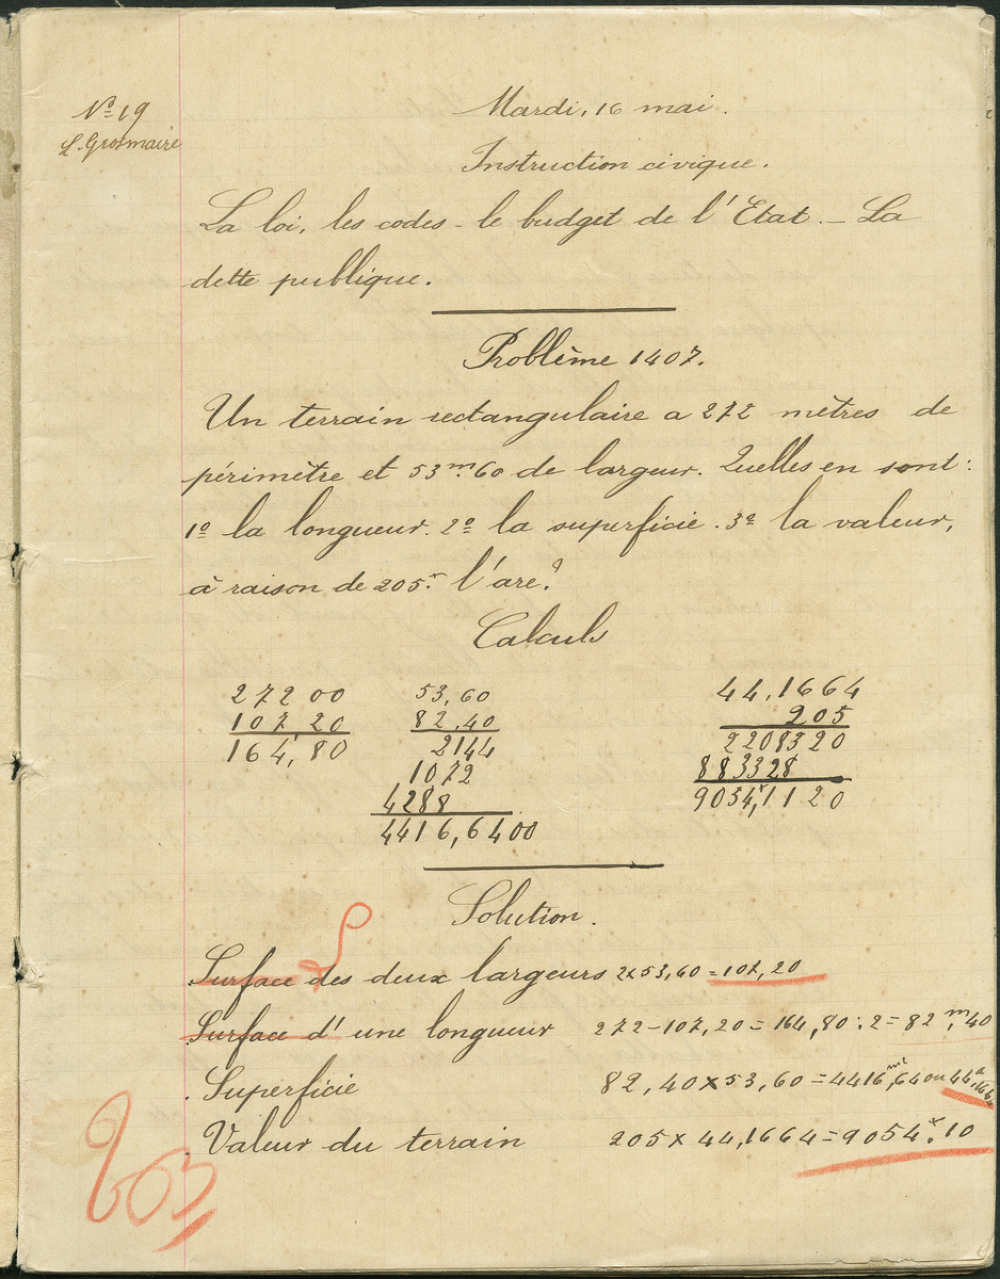 Nº 19
L. Grosmaire
Mardi, 16 mai.
Instruction civique.
La loi, les codes - le budget de l'Etat. - La
dette publique.
Problème 1407.
Un terrain rectangulaire a 272 mètres de
périmètre et 53m.60 de largeur. Quelles en sont :
1º la longueur. 2º la superficie. 3º la valeur,
à raison de 205f. l'are?
Calculs
272 00
107 20
164,80
53,60
82,40
2144
1072
4288
4416,6400
44,1664
205
2208320
883328
9054f,1120
Solution.
Surface des deux largeurs 2x53,60 = 107,20
Surface d'une longueur 272-107,20 = 164,80 : 2 = 82m,40
Superficie 82,40 x 53,60 = 4416m²,64 ou 44a,1664
Valeur du terrain 205 x 44,1664 = 9054f.10